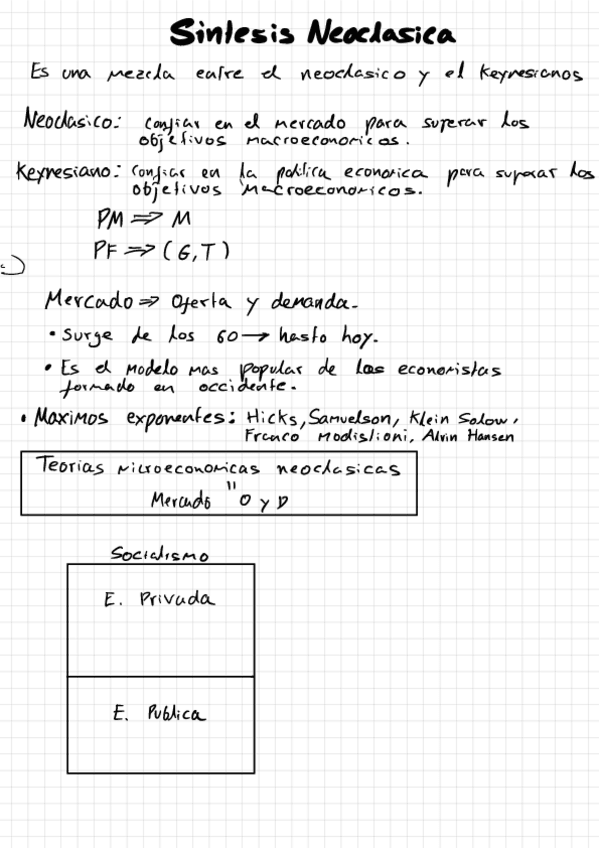 Sintesis Neoclasica
Es una mezcla entre el neoclasico y el Keynesianos
Neoclasico: confiar en el mercado para superar los
objetivos macroeconomicos.
Keynesiano: confiar en la politica economica para superar los
objetivos macroeconomicos.
PM ⇒ M
PF ⇒ (G,T)
Mercado ⇒ Oferta y demanda.
• Surge de los 60 → hasto hoy.
• Es el modelo mas popular de los economistas
formado en occidente.
• Maximos exponentes: Hicks, Samuelson, Klein Solow,
Franco Modislioni, Alvin Hansen
Teorias microeconomicas neoclasicas
Mercado " O y D
Socialismo
E. Privada
E. Publica